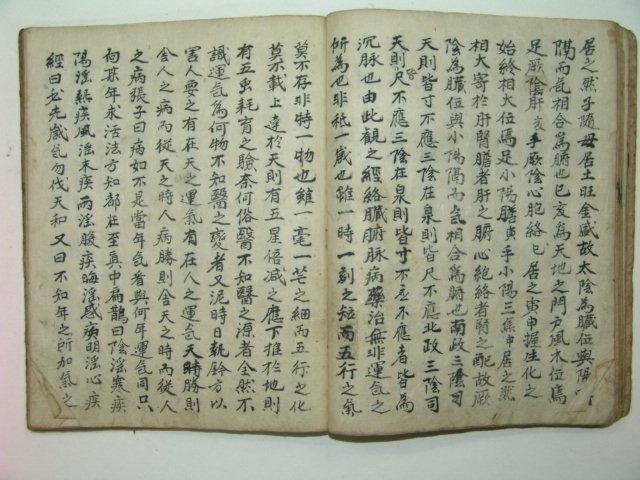 居之然子隨母居土旺金盛故太陰爲臟位與陽
明而氣相合爲腑也巳亥爲天地之門户風木位焉
足厥陰肝亥手厥陰心胞絡巳居之寅申握生化之
始終相火位焉足小陽膽寅手小陽三焦申居之然
相火寄於肝腎膽者肝之腑心胞絡者腎之配故厥
陰爲臟位與小陽而氣相合爲腑也南政三陰司
天則皆寸不應三陰在泉則皆尺不應北政三陰司
天則皆尺不應三陰在泉則皆寸不應不應者皆爲
沉脉也由此觀之經絡臟腑脉病藥治無非運氣之
所爲也非秪一歲也雖一時一刻之短而五行之氣
莫不存非特一物也雖一毫一芒之細而五行之化
莫不載上達於天則有五星倍减之應下推於地則
有五虫耗育之驗奈何俗醫不知醫之源者全然不
識運氣爲何物不知醫之變者又泥時日執鈐方以
害人要之有在天之運氣有在人之運氣天時勝則
舍人之病而從天之時人病勝則舍天之時而從人
之病張子曰病如不是當年氣看與何年運氣同只
向某年求活法方知都在至真中扁鵲曰陰淫寒疾
陽淫熱疾風淫末疾雨淫腹疾晦淫惑疾明淫心疾
經曰必先歲氣勿伐天和又曰不知年之所加氣之